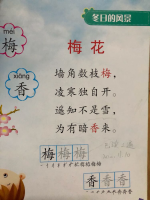 冬日的风景
méi
梅
梅花
墙角数枝梅，
凌寒独自开。
xiāng
香
遥知不是雪，
为有暗香来。
梅 梅 梅
香 香 香